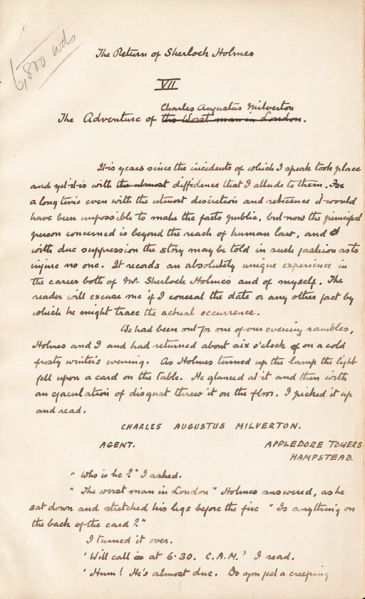 6,800 wds
The Return of Sherlock Holmes
VII
Charles Augustus Milverton
The Adventure of the Worst man in London.
It is years since the incidents of which I speak took place
and yet it is with the utmost diffidence that I allude to them. For
a long time even with the utmost discretion and reticence it would
have been impossible to make the facts public, but now the principal
person concerned is beyond the reach of human law, and
with due suppression the story may be told in such fashion as to
injure no one. It records an absolutely unique experience in
the career both of Mr. Sherlock Holmes and of myself. The
reader will excuse me if I conceal the date or any other fact by
which he might trace the actual occurrence.
We had been out for one of our evening rambles,
Holmes and I and had returned about six o'clock on a cold
frosty winter's evening. As Holmes turned up the lamp the light
fell upon a card on the table. He glanced at it and then with
an ejaculation of disgust threw it on the floor. I picked it up
and read.
CHARLES AUGUSTUS MILVERTON.
AGENT. APPLEDORE TOWERS
HAMPSTEAD.
"Who is he?" I asked.
"The worst man in London" Holmes answered, as he
sat down and stretched his legs before the fire "Is anything on
the back of the card?"
I turned it over.
'Will call at 6.30. C.A.M.' I read.
'Hum! He's almost due. Do you feel a creeping